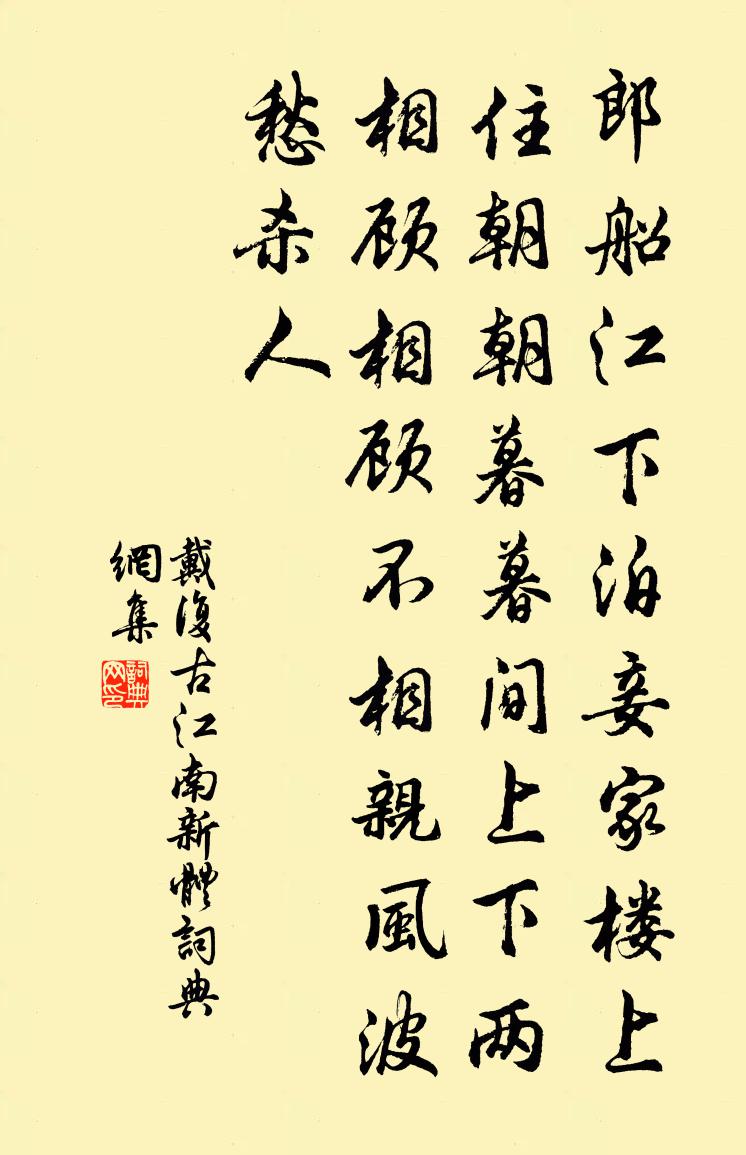 郎船江下泊妾家楼上
住朝朝暮暮间上下两
相顾相顾不相親風波
愁杀人
戴復古江南新體詞典
網集
詞典網印